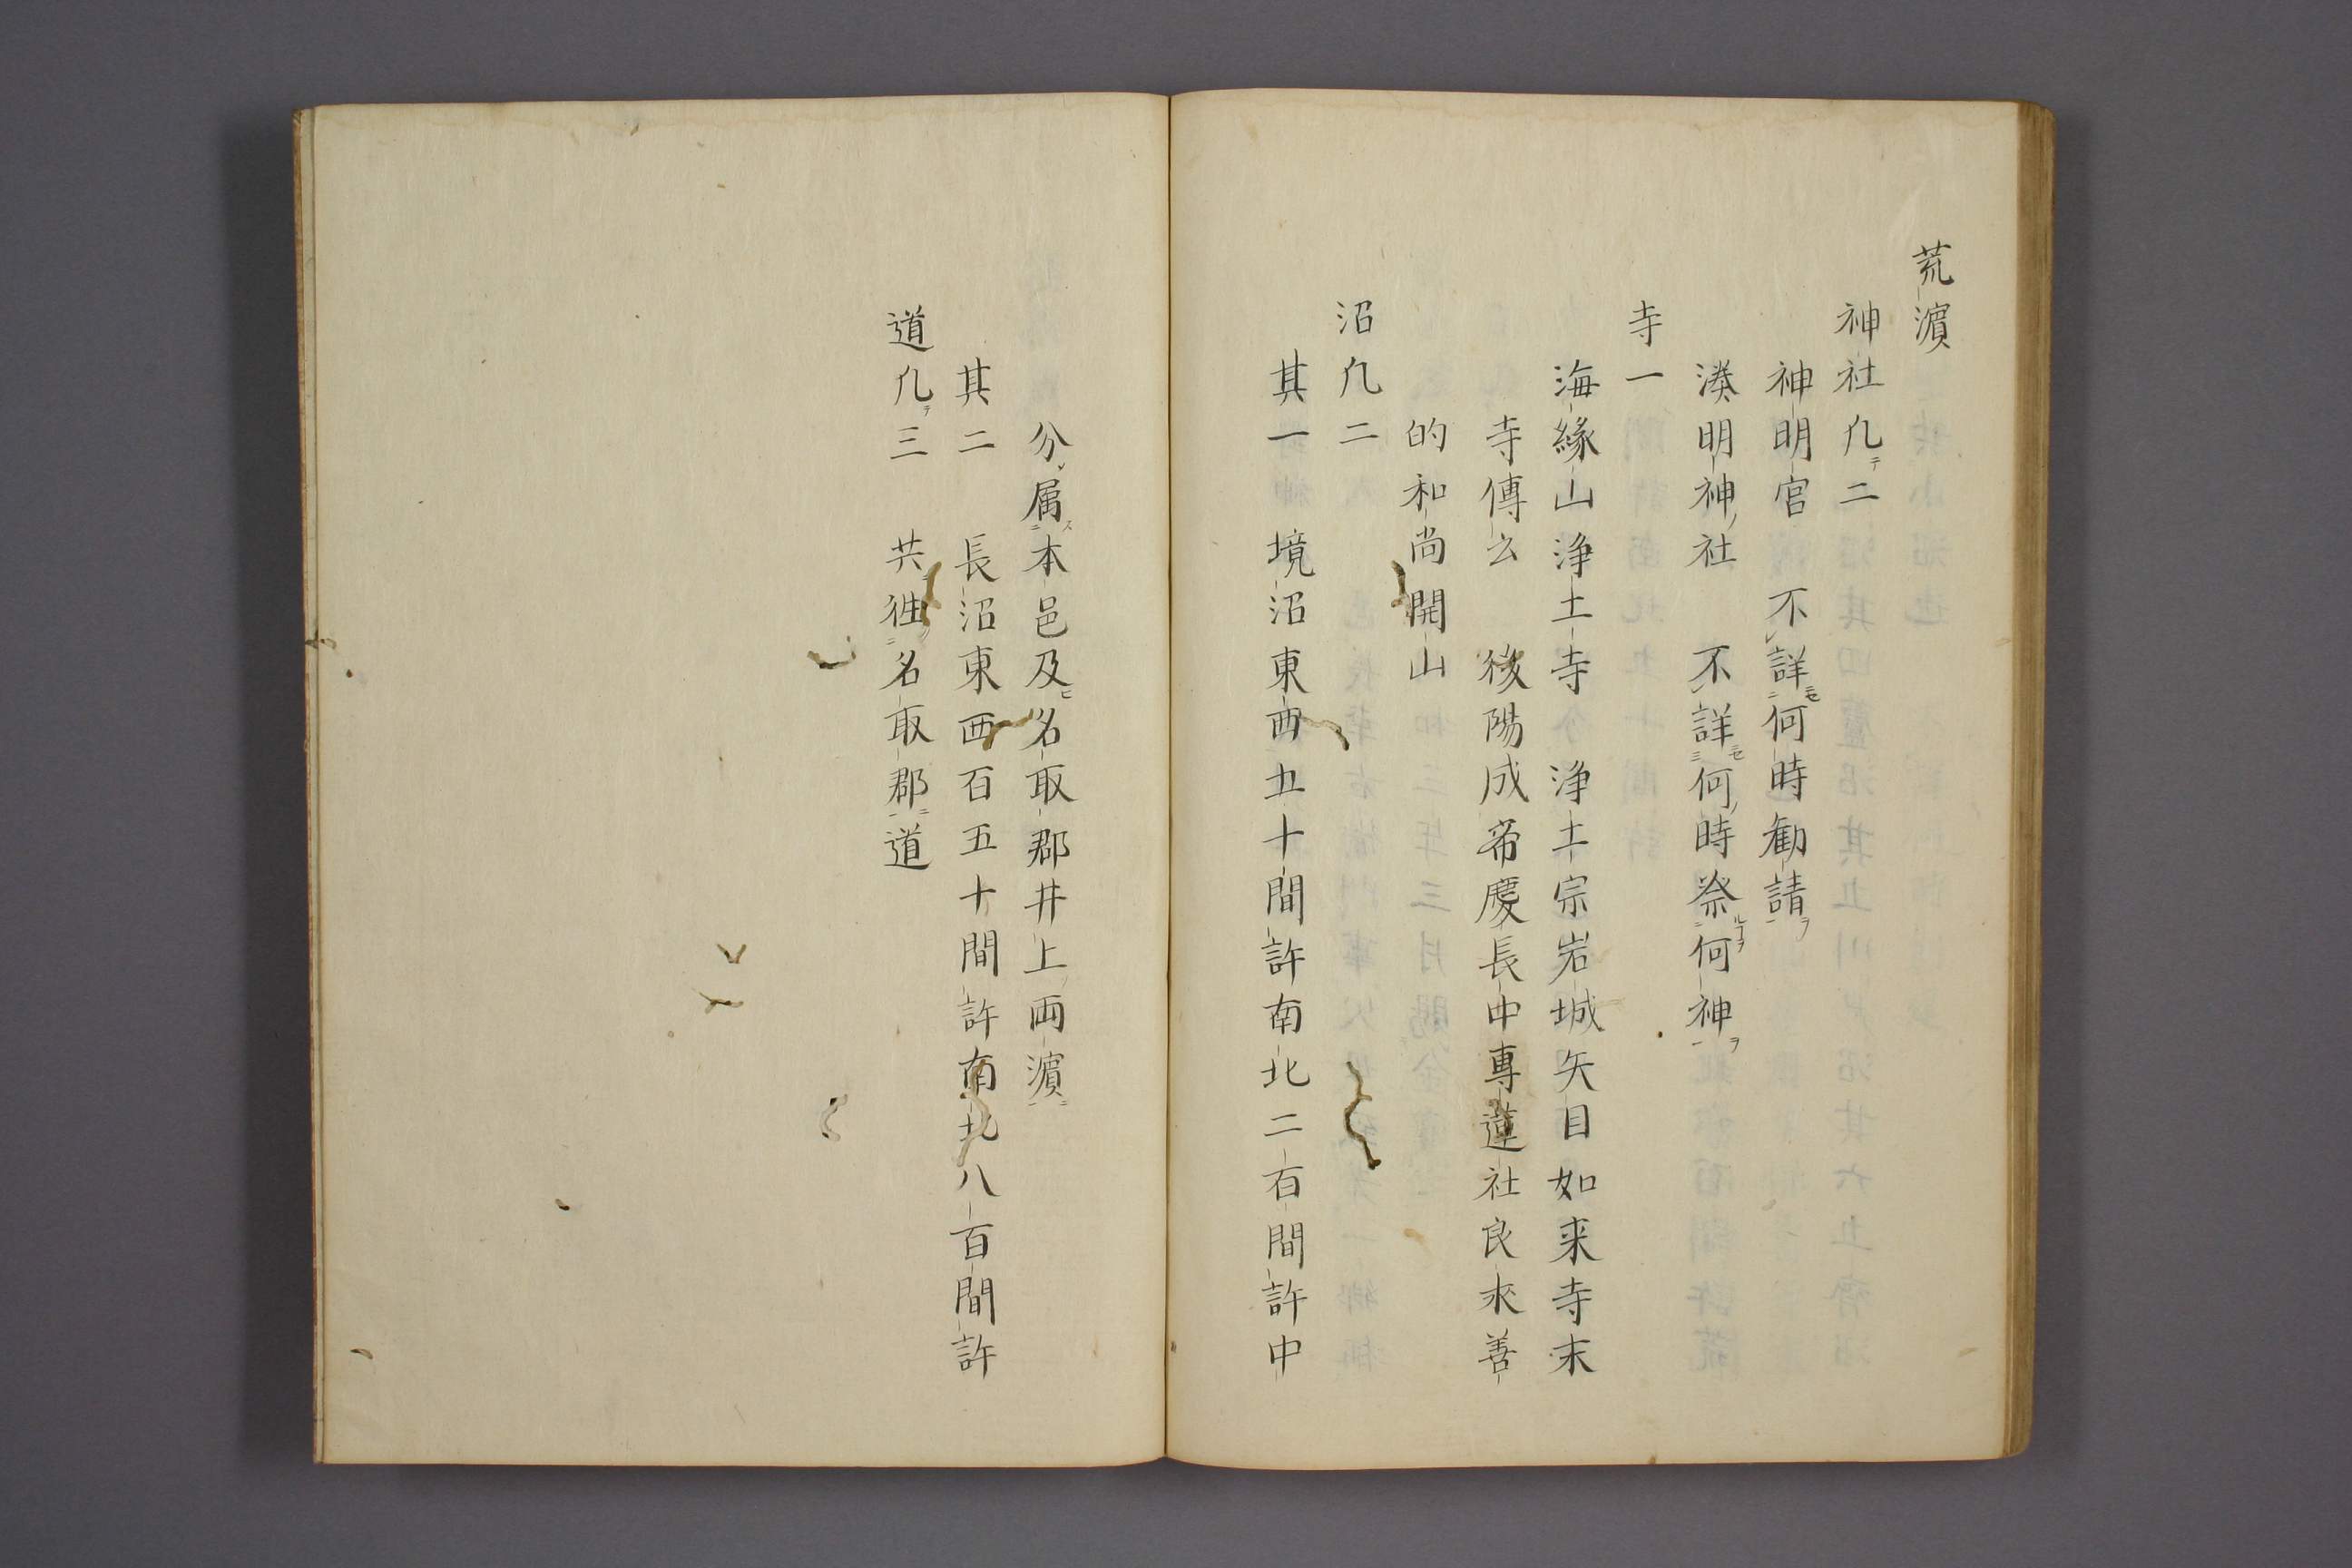 荒濱
神社凢テ二
神明宮 不詳何時勧請ヲ
湊明神ノ社 不詳何ノ時祭何神ヲ
寺一
海緣山浄土寺 浄土宗岩城矢目如来寺末
寺傳云 後陽成帝慶長中專蓮社良夾善
的和尚開山
沼凢二
其一 境沼東西五十間許南北二百間許中
分属本邑及ヒ名取郡井上両濱ニ
其二 長沼東西百五十間許南北八百間許
道凢テ三 共徃名取郡ニ道